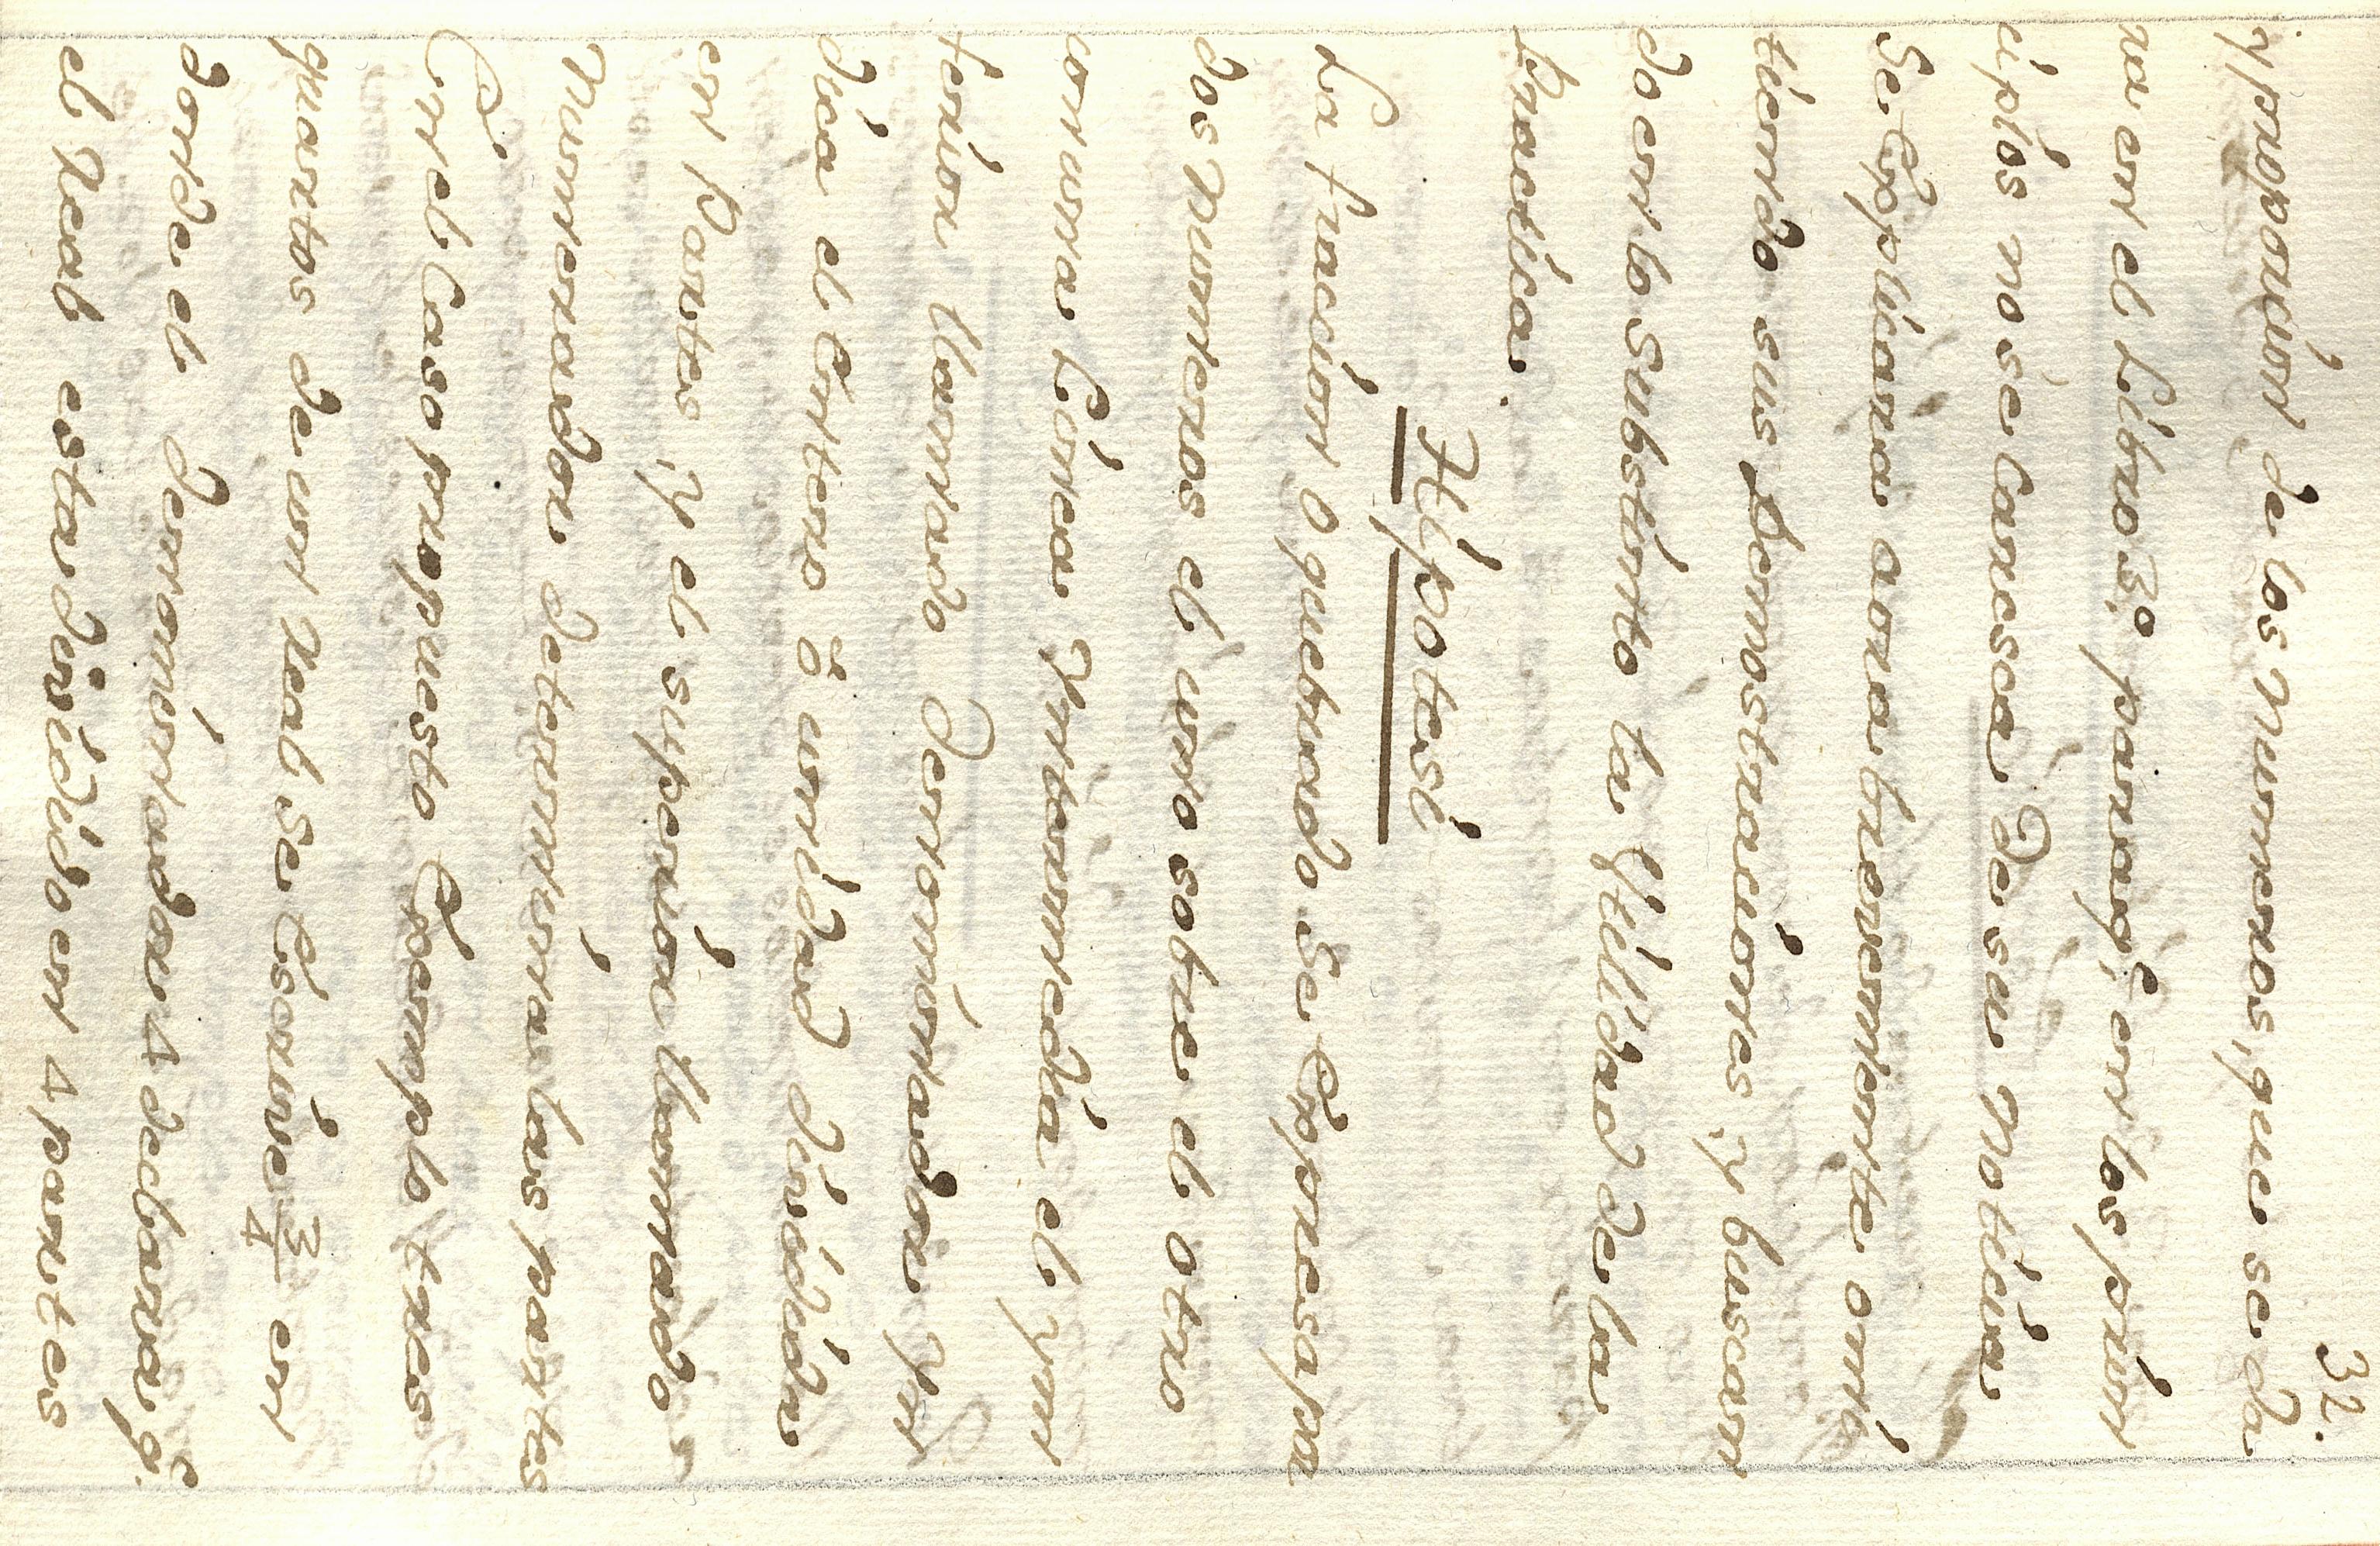 32.
y proporcion de los Numeros, que se da
ra en el Libro 3º. para q̃ en los prin
cipios no se Caresca De su Noticia
Se Explicara aora brevemente omi
tiendo sus Demostraciones, y buscan
do en lo Substinto la Vtillidad de la
Practica.
Hipotesi
La fracion o quebrado se Expresa por
dos Numeros el uno sobre el otro
con una Linea Yntermedia el Yn
ferior llamado Denominador Yn
dica el Entero ŏ unidad dividida
en Partes, y el superior llamado
Numerador determina las partes
En el Caso propuesto Exemplo tres
quartos de un Real se Escrive 3/4 en
donde el denominador 4 declara q̃.
el Real esta dividido en 4 partes